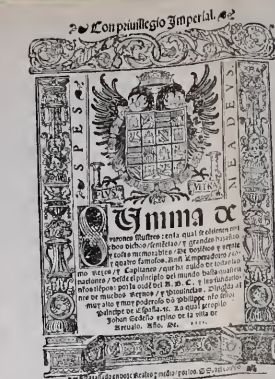 Con priuillegio Imperial.
SPES
MEA DEVS.
Summa de
varones Illustres: en la qual se contienen mu
chos dichos / sentẽcias / y grandes hazañas
y cosas memorables: De dozientos y veynte
y quatro famosos. Ansi Emperadores / co
mo Reyes / y Capitanes / que ha auido de todas las
naciones / desde el principio del mundo hasta quasi en
ños tiẽpos: por la ordẽ del A. B. C. y las fundacio
nes de muchos Reynos / y prouincias. Dirigida al
muy alto y muy poderoso dõ Philippe nño señor
Principe de España. zc. La qual copilo
Johan Sedeño vezino de la villa de
Areualo. Año. De